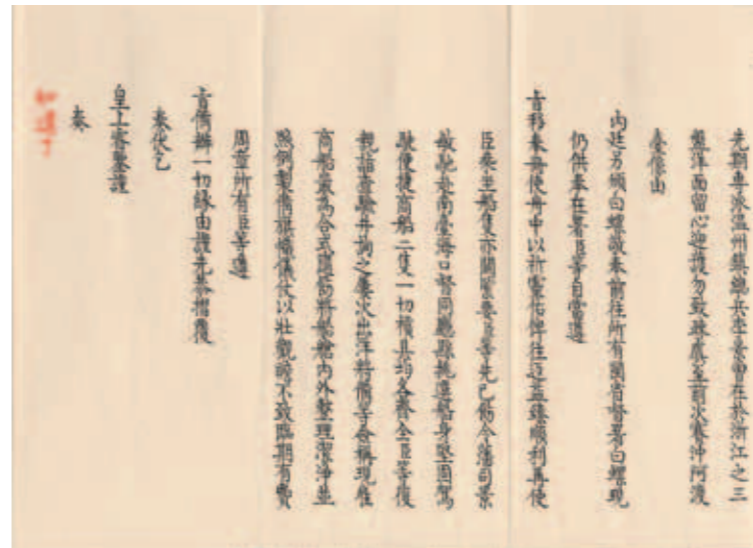 先期專派溫州鎮總兵李景曾在於浙江之三
盤洋面留心迎護勿致疎虞至前次賽沖阿渡
臺係由
內廷另頒白螺敬奉前往所有閩省督署白螺現
仍供奉在署臣等自當遵
旨移奉冊使舟中以祈靈佑俾往返益臻順利再使
臣乘坐船隻亦關緊要臣等先已飭令藩司景
敏馳赴南臺海口督同廳縣挑選船身堅固駕
駛便捷商船二隻一切槓具均各齊全臣等復
親詣查驗并詢之屢次出洋將備等僉稱現在
商船最為合式隨飭將船艙內外整理潔淨並
照例製備旗幟儀仗以壯觀瞻不致臨期有費
周章所有臣等遵
旨備辦一切緣由謹先恭摺覆
奏伏乞
皇上睿鑒謹
奏
知道了